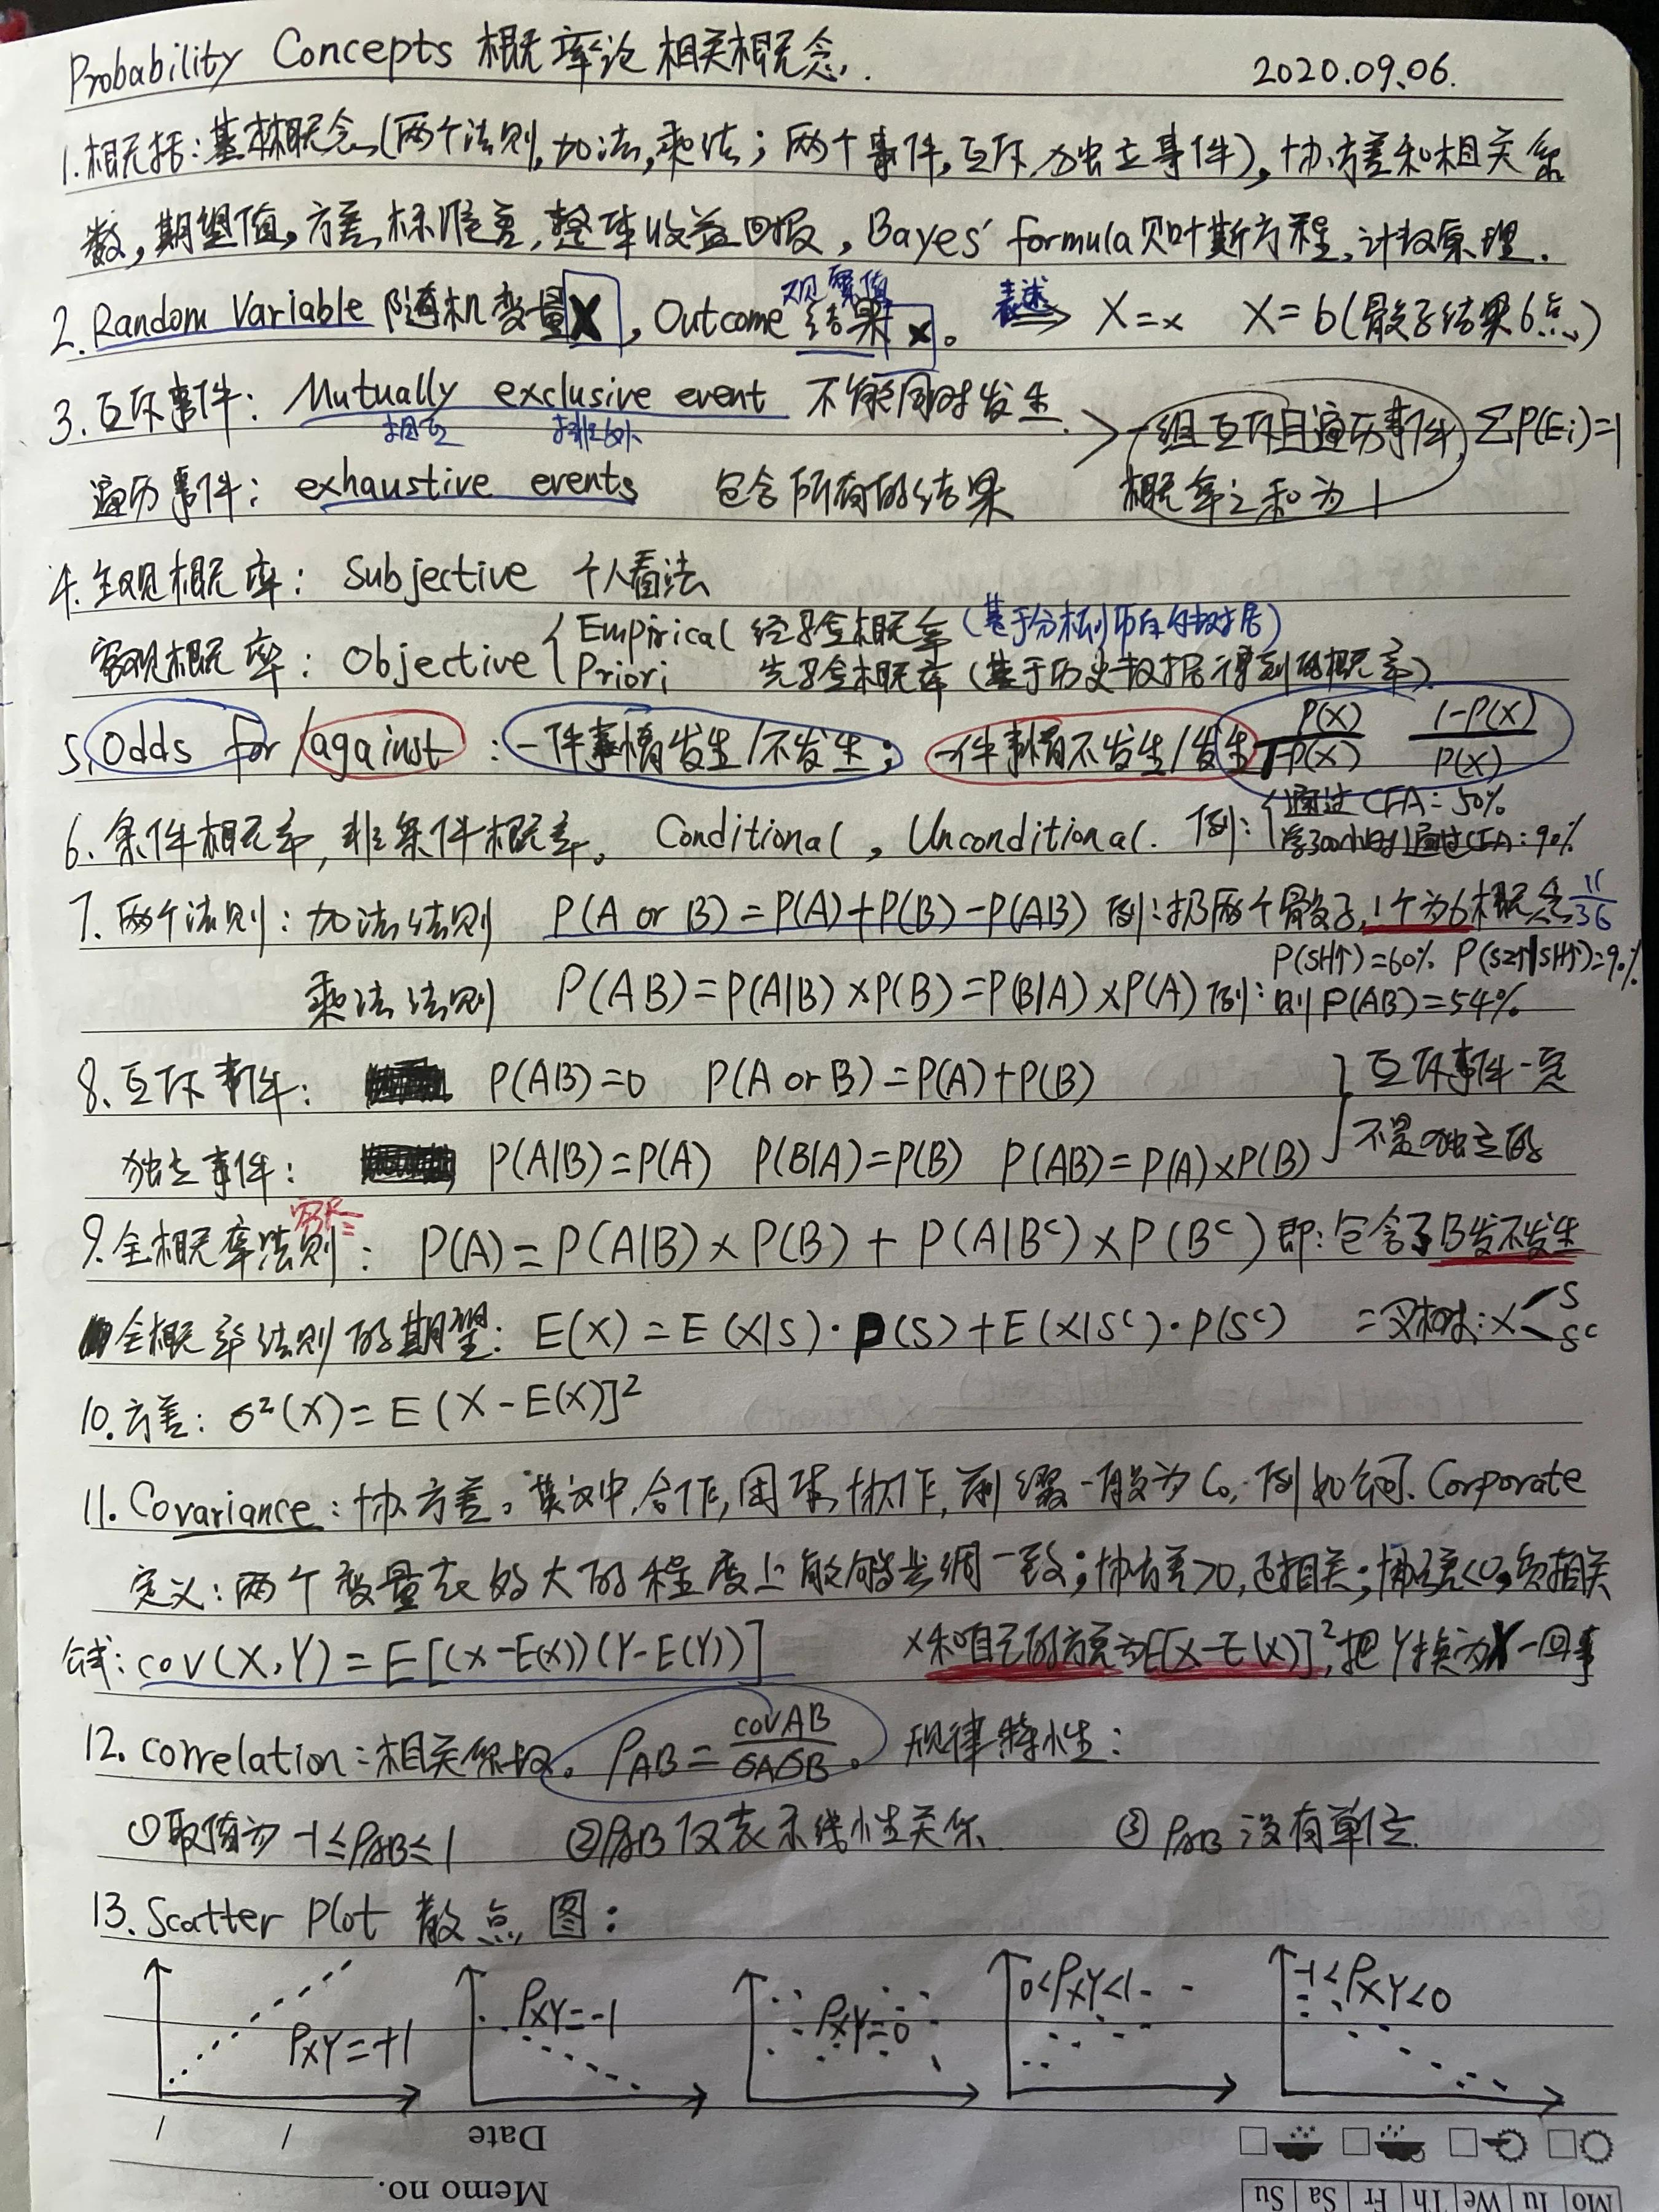 Probability Concepts 概率论相关概念. 2020.09.06.
1.概括:基础概念(两个法则,加法,乘法;两个事件,互斥,独立事件),协方差和相关系
数,期望值,方差,标准差,整体收益回报,Bayes' formula贝叶斯方程,计数原理.
2.Random Variable 随机变量X,Outcome 结果x。 表述⇒ X=x X=6(骰子结果6点)
观察值
3.互斥事件: Mutually exclusive event 不能同时发生 > 一组互斥且遍历事件, ΣP(Ei)=1
相互 排外
遍历事件: exhaustive events 包含所有的结果 概率之和为1
4.主观概率: Subjective 个人看法
客观概率: Objective { Empirical 经验概率(基于分析历史的数据)
Priori 先验概率(基于历史数据得到的概率)
5.Odds for/against: 一件事情发生/不发生; 一件事情不发生/发生 P(X)/1-P(X) 1-P(X)/P(X)
6.条件概率,非条件概率。Conditional, Unconditional. 例:{通过CFA=50%
学300小时通过CFA:90%
7.两个法则:加法法则 P(A or B)=P(A)+P(B)-P(AB) 例:扔两个骰子,1个为6概率11/36
P(SH↑)=60% P(SZ↑|SH↑)=90%
乘法法则 P(AB)=P(A|B)×P(B)=P(B|A)×P(A) 例: 则P(AB)=54%
8.互斥事件: P(AB)=0 P(A or B)=P(A)+P(B) } 互斥事件一定
独立事件: P(A|B)=P(A) P(B|A)=P(B) P(AB)=P(A)×P(B) 不是独立的
9.全概率法则: P(A)=P(A|B)×P(B)+P(A|Bᶜ)×P(Bᶜ) 即:包含了B发不发生
全概率法则的期望: E(X)=E(X|S)·P(S)+E(X|Sᶜ)·P(Sᶜ) =叉树:X<S Sᶜ
10.方差: σ²(X)=E(X-E(X)]²
11.Covariance:协方差。英文中,合作,团体,协作,前缀一般为Co,例如公司.Corporate
定义:两个变量在多大的程度上能够步调一致;协方差>0,正相关;协方差<0,负相关
公式:cov(X,Y)=E[(X-E(X))(Y-E(Y))] X和自己的方差为E[X-E(X)]²,把Y换为X一回事
12.Correlation:相关系数。ρAB=covAB/σAσB。规律特性:
①取值为-1≤ρAB≤1 ②ρAB仅表示线性关系 ③ρAB没有单位
13.Scatter Plot 散点图:
ρXY=+1 ρXY=-1 ρXY=0 0<ρXY<1 -1<ρXY<0
Date / /
Memo no.
Mo Tu We Th Fr Sa Su